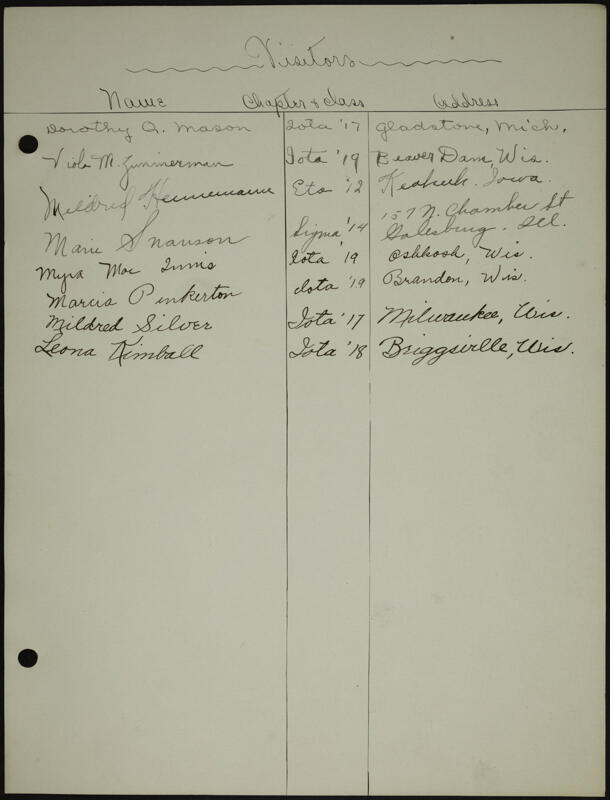 Visitors
Name Chapter & Class Address
Dorothy Q. Mason Iota '17 Gladstone, Mich.
Viola M. Zimmerman Iota '19 Beaver Dam, Wis.
Mildred Hennemann Eta '12 Keokuk, Iowa.
157 N. Chamber St
Marie Swanson Sigma '14 Galesburg, Ill.
Myra Mac Innis Iota '19 Oshkosh, Wis.
Marcia Pinkerton Iota '19 Brandon, Wis.
Mildred Silver Iota '17 Milwaukee, Wis.
Leona Kimball Iota '18 Briggsville, Wis.